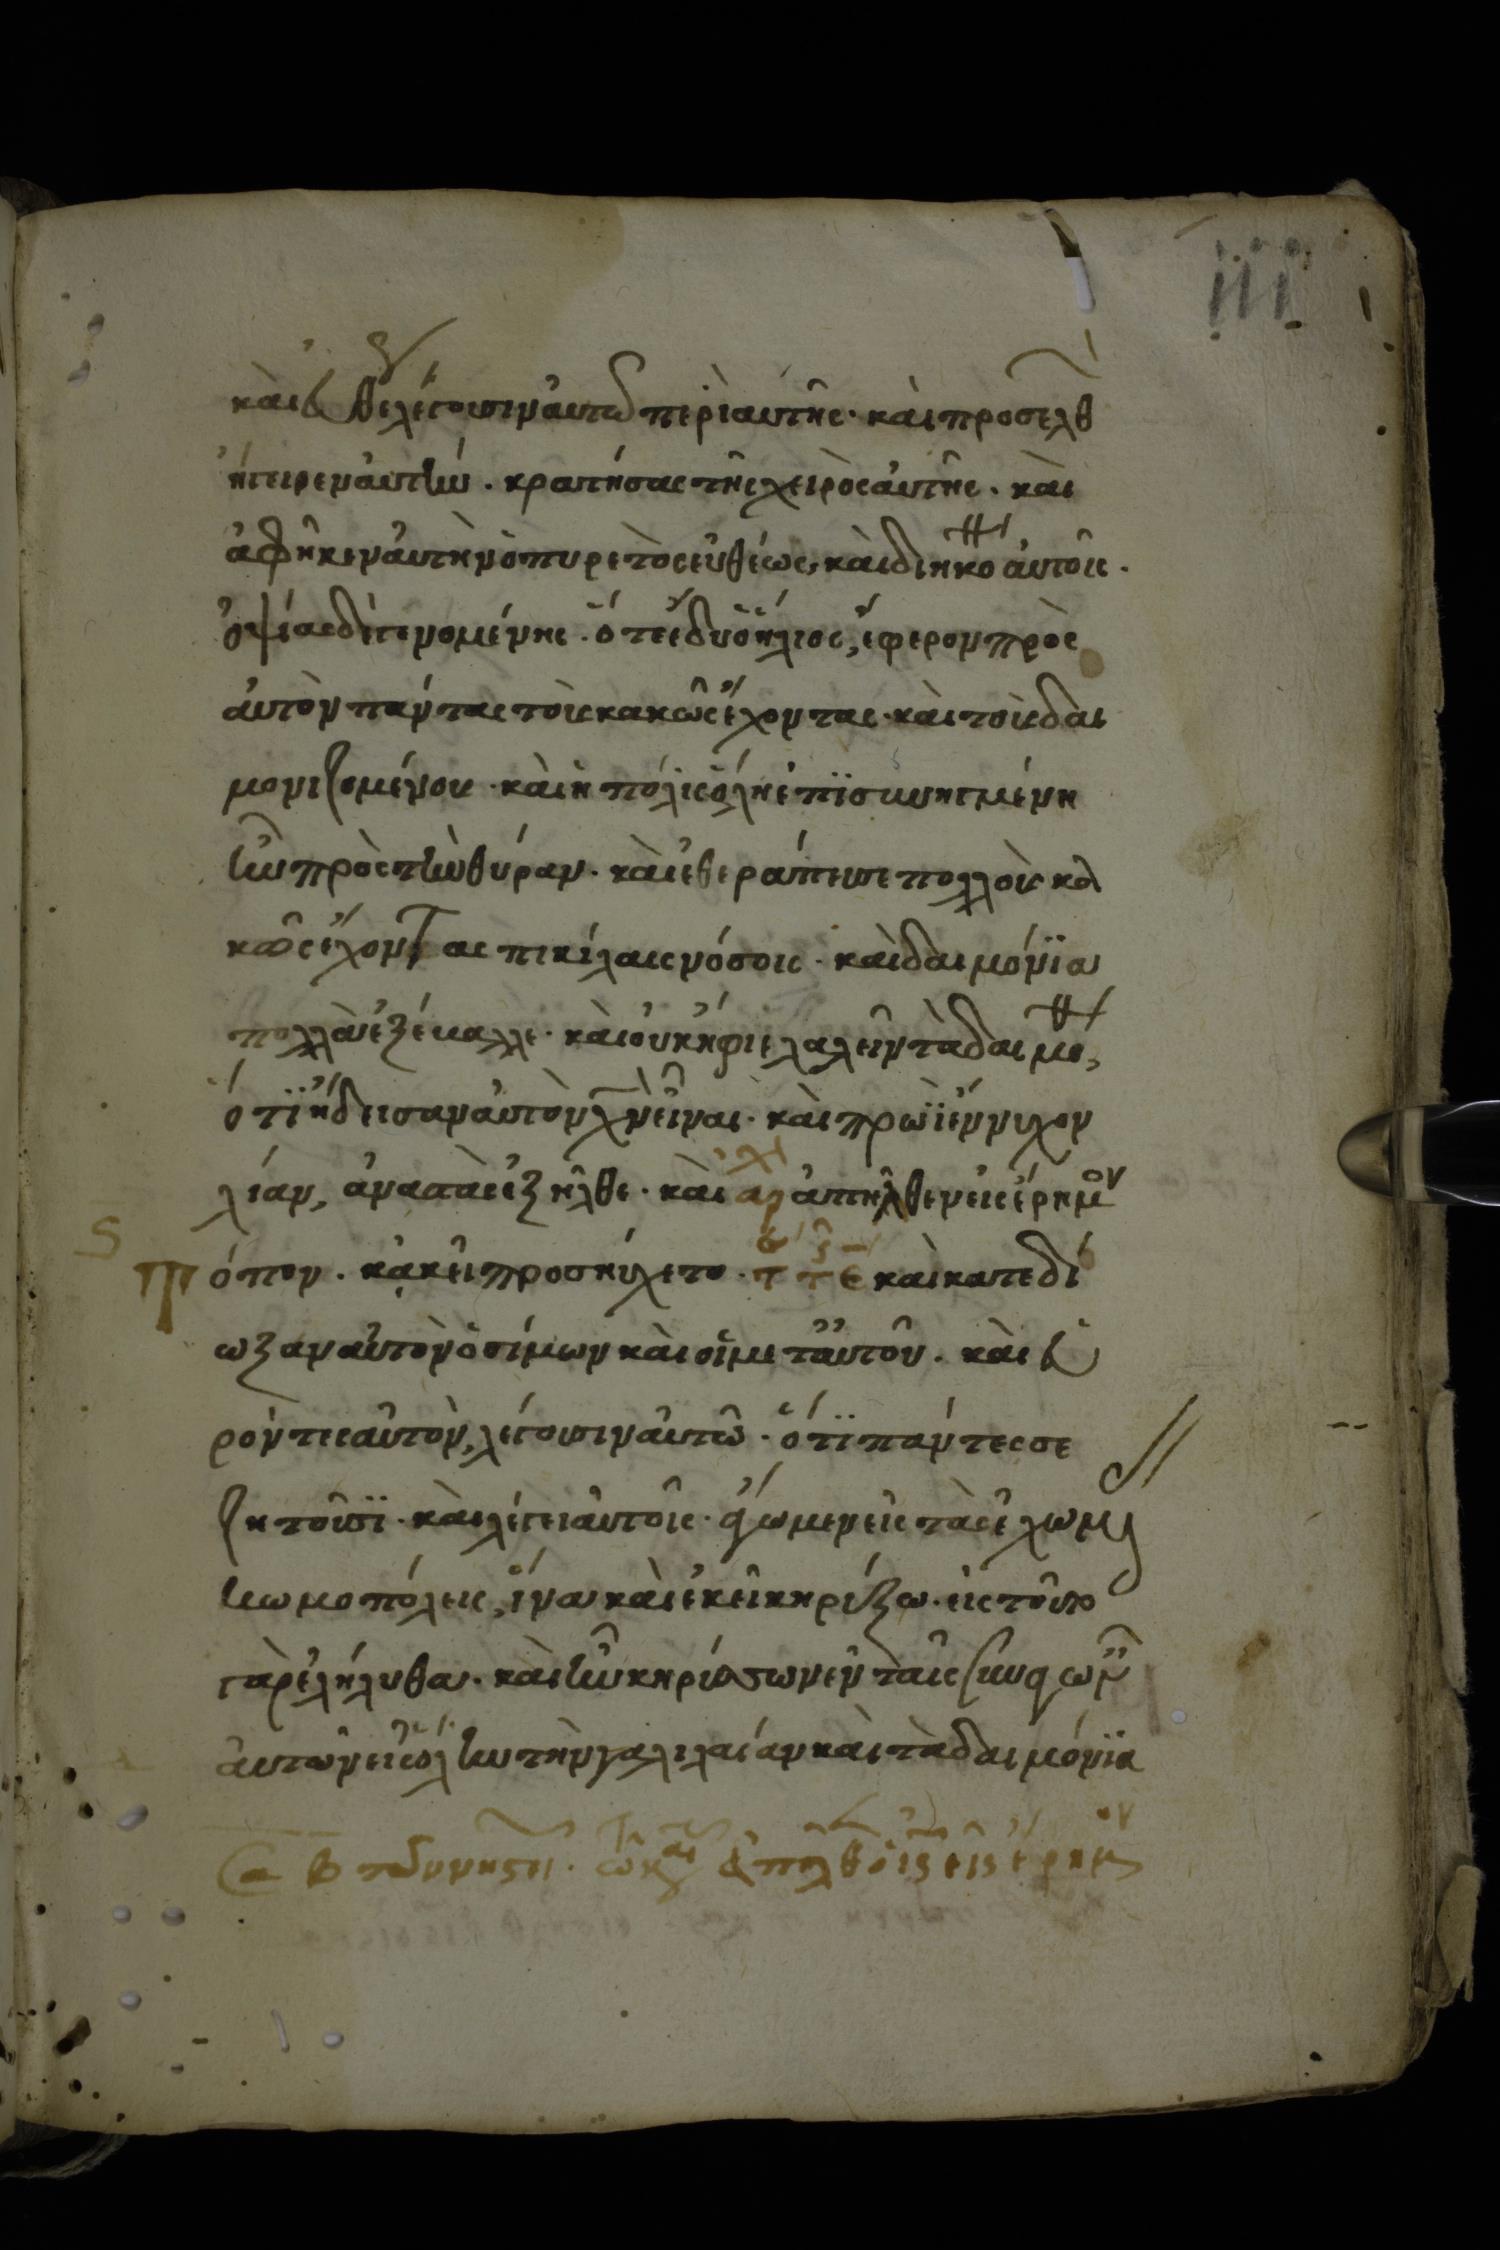 καὶ εὐθ λέγουσιν αὐτῶ περὶ αὐτῆς· καὶ προσελθ
ἤγειρεν αὐτὴν· κρατήσας τῆς χειρὸς αὐτῆς· καὶ
ἀφῆκεν αὐτὴν ὁ πυρετὸς εὐθέως, καὶ διηκο αὐτοῖς·
ὀψίας δὲ γενομένης· ὅτε ἔδυ ὁ ἥλιος, ἔφερον πρὸς
αὐτὸν πάντας τοὺς κακῶς ἔχοντας· καὶ τοὺς δαι
μονιζομένους· καὶ ἡ πόλις ὅλη ἐπϊσυνηγμένη
ἦν πρὸς τὴν θύραν· καὶ ἐθεράπευσε πολλοὺς κα
κῶς ἔχοντας πικίλαις νόσοις· καὶ δαιμόνϊα
πολλὰ ἐξέβαλλε· καὶ οὐκ ἤφιε λαλεῖν τὰ δαιμο,
ὅτϊ ἤδεισαν αὐτὸν χν εἶναι· καὶ πρωϊ ἔννυχον
λίαν, ἀναστὰς ἐξῆλθε· καὶ ἀπῆλθεν εἰς ἔρημον
τόπον· κἀκεῖ προσηύχετο· καὶ κατεδί
ωξαν αὐτὸν ὁ σίμων καὶ οἱ μετ αὐτοῦ· καὶ εὑ
ρόντες αὐτὸν, λέγουσιν αὐτῶ· ὅτϊ πάντες σε
ζητοῦσϊ· καὶ λέγει αὐτοῖς· ἄγωμεν εἰς τὰς ἐχωμ
κωμοπόλεις, ἵνα καὶ ἐκεῖ κηρύξω· εἰς τοῦτο
γὰρ ἐλήλυθα· καὶ ἦν κηρύσσων ἐν ταῖς συναγωγ
αὐτῶν εἰς ὅλην τὴν γαλιλαίαν καὶ τὰ δαιμόνϊα